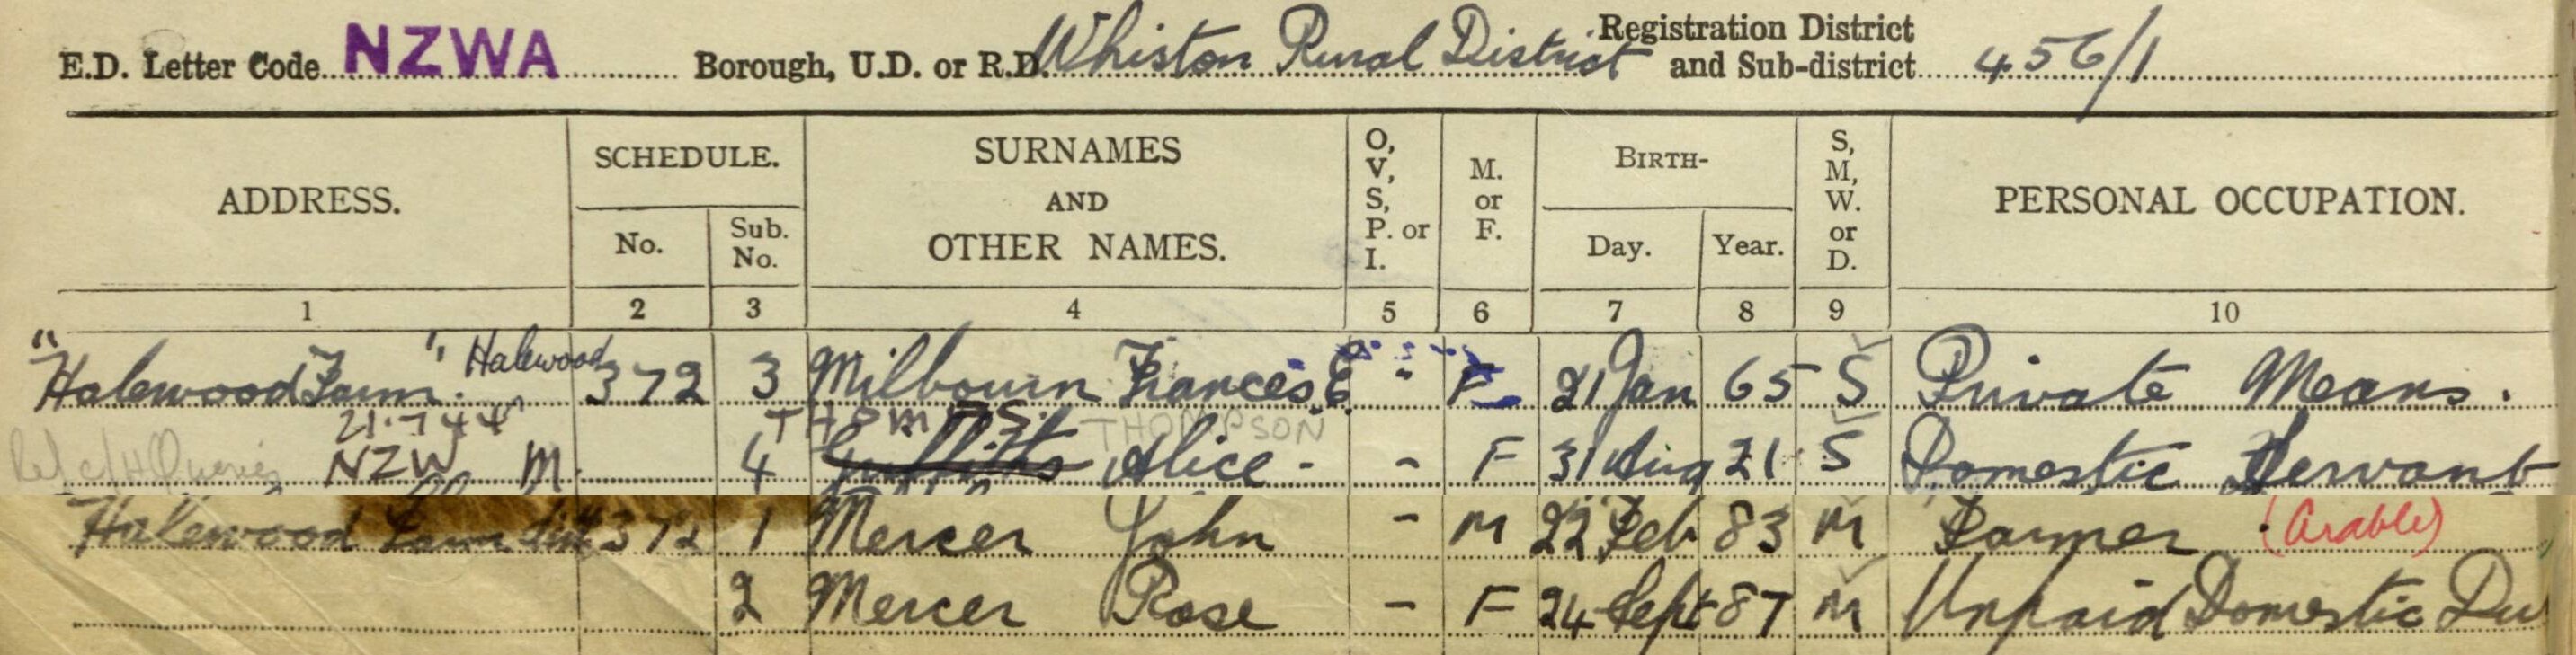 E.D. Letter Code NZWA Borough, U.D. or R.D. Whiston Rural District Registration District and Sub-district 456/1
ADDRESS. SCHEDULE. SURNAMES AND OTHER NAMES. O, V, S, P. or I. M. or F. BIRTH- S, M, W. or D. PERSONAL OCCUPATION.
No. Sub. No. Day. Year.
1 2 3 4 5 6 7 8 9 10
"Halewood Farm", Halewood 372 3 Milbourn Frances E. " F 21 Jan 65 S Private Means.
21.7.44 THOMPSON THOMPSON
NZW M. 4 Griffiths Alice - - F 31 Aug 21 S Domestic Servant
Halewood Farm 372 1 Mercer John - M 22 Feb 83 M Farmer (Arable)
2 Mercer Rose - F 24 Sept 87 M Unpaid Domestic Du